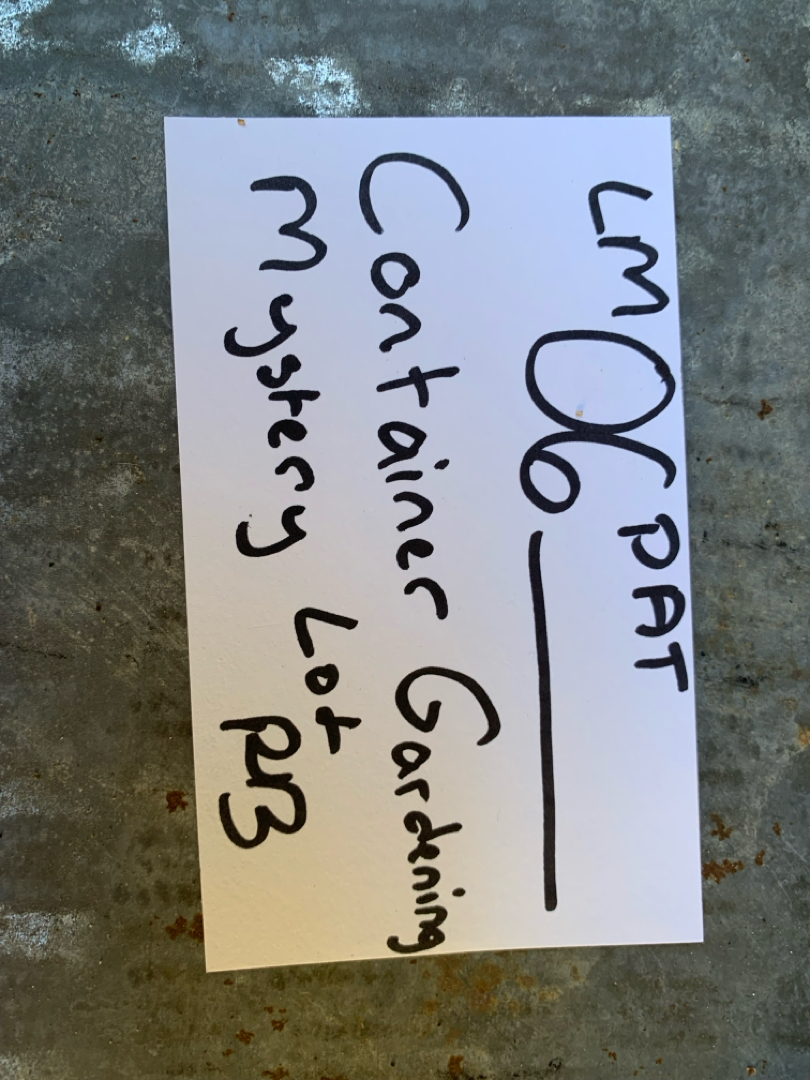 LM06 PAT
Container Gardening
Mystery Lot